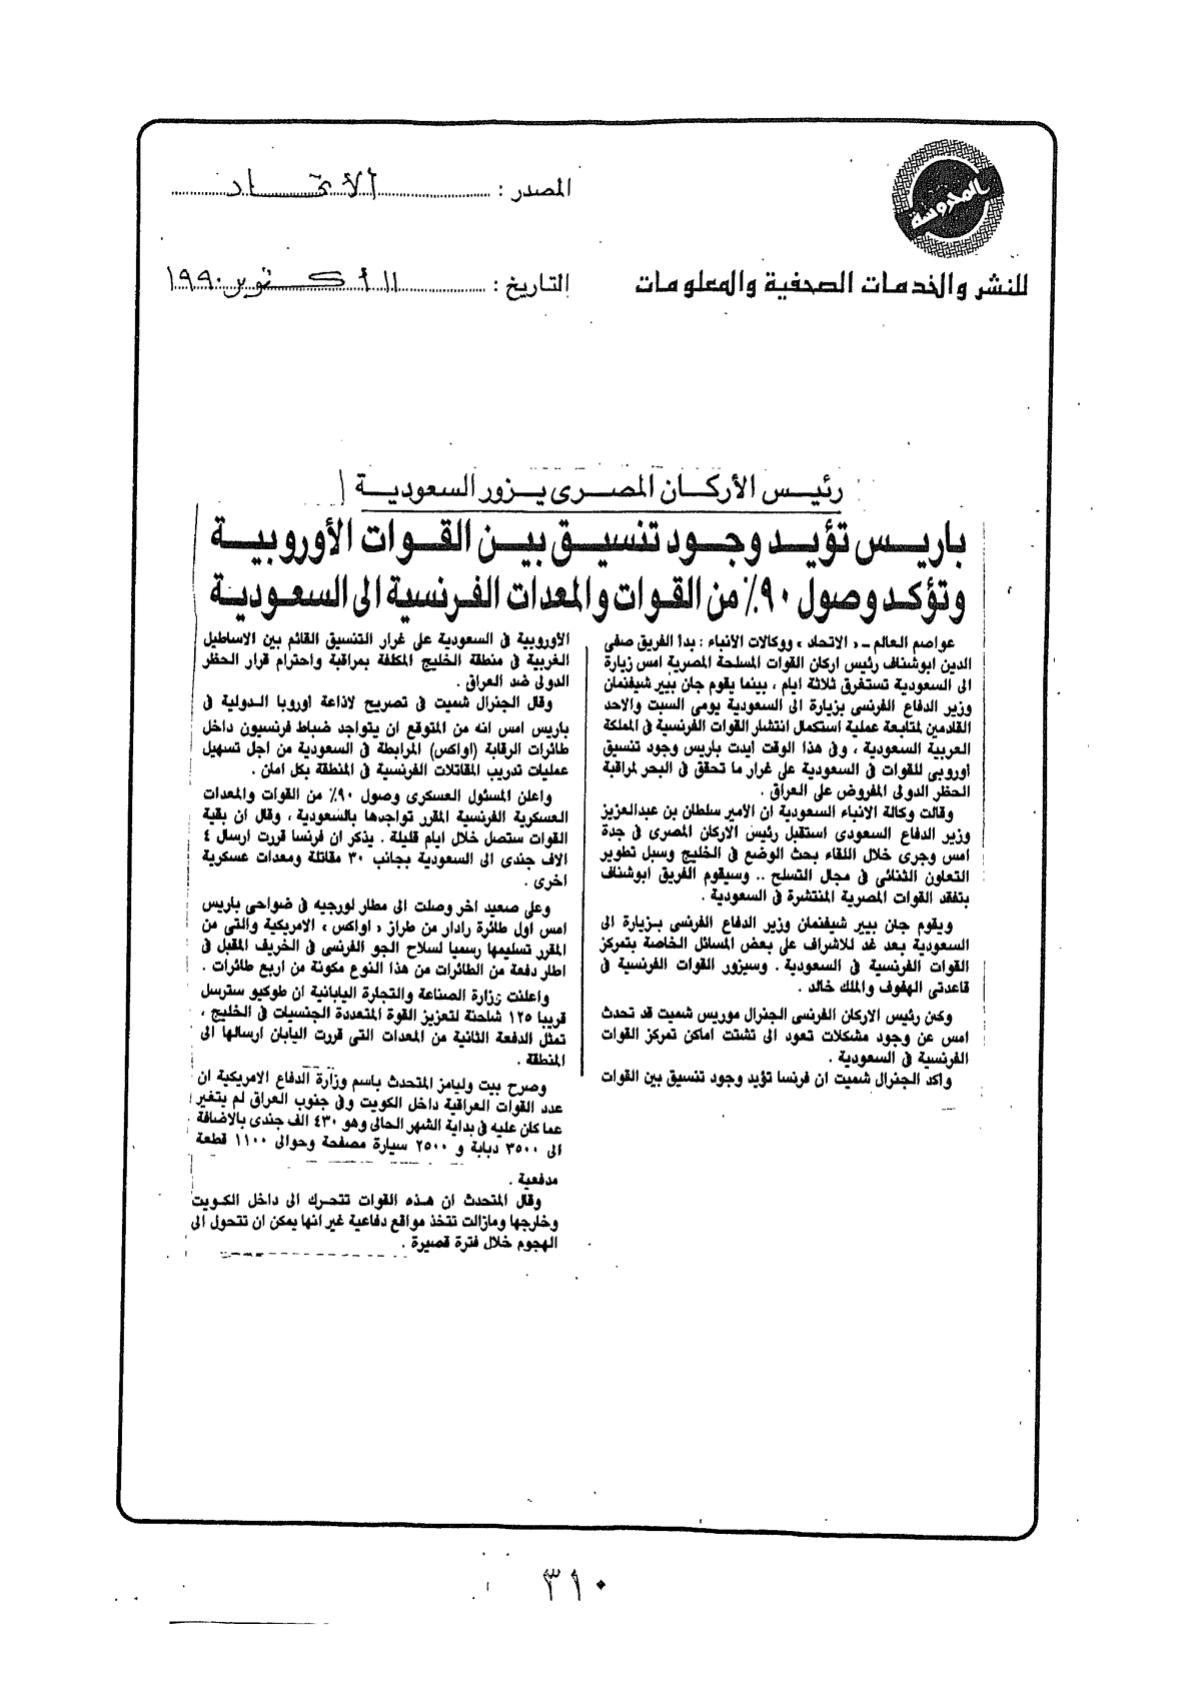 المحروسة
المصدر : الاتحاد
للنشر والخدمات الصحفية والمعلومات
التاريخ : ١١ أكتوبر ١٩٩٠
رئيس الأركان المصرى يزور السعودية
باريس تؤيد وجود تنسيق بين القوات الأوروبية
وتؤكد وصول ٩٠٪ من القوات والمعدات الفرنسية الى السعودية
عواصم العالم ــ « الاتحاد » ووكالات الانباء : بدأ الفريق صفى
الدين ابوشناف رئيس اركان القوات المسلحة المصرية امس زيارة
الى السعودية تستغرق ثلاثة ايام ، بينما يقوم جان بيير شيفنمان
وزير الدفاع الفرنسى بزيارة الى السعودية يومى السبت والاحد
القادمين لمتابعة عملية استكمال انتشار القوات الفرنسية فى المملكة
العربية السعودية ، وفى هذا الوقت ايدت باريس وجود تنسيق
اوروبى للقوات فى السعودية على غرار ما تحقق فى البحر لمراقبة
الحظر الدولى المفروض على العراق .
وقالت وكالة الانباء السعودية ان الامير سلطان بن عبدالعزيز
وزير الدفاع السعودى استقبل رئيس الاركان المصرى فى جدة
امس وجرى خلال اللقاء بحث الوضع فى الخليج وسبل تطوير
التعاون الثنائى فى مجال التسلح .. وسيقوم الفريق ابوشناف
بتفقد القوات المصرية المنتشرة فى السعودية .
ويقوم جان بيير شيفنمان وزير الدفاع الفرنسى بزيارة الى
السعودية بعد غد للاشراف على بعض المسائل الخاصة بتمركز
القوات الفرنسية فى السعودية . وسيزور القوات الفرنسية فى
قاعدتى الهفوف والملك خالد .
وكان رئيس الاركان الفرنسى الجنرال موريس شميت قد تحدث
امس عن وجود مشكلات تعود الى تشتت اماكن تمركز القوات
الفرنسية فى السعودية .
واكد الجنرال شميت ان فرنسا تؤيد وجود تنسيق بين القوات
الأوروبية فى السعودية على غرار التنسيق القائم بين الاساطيل
الغربية فى منطقة الخليج المكلفة بمراقبة واحترام قرار الحظر
الدولى ضد العراق .
وقال الجنرال شميت فى تصريح لاذاعة اوروبا الدولية فى
باريس امس انه من المتوقع ان يتواجد ضباط فرنسيون داخل
طائرات الرقابة (اواكس) المرابطة فى السعودية من اجل تسهيل
عمليات تدريب المقاتلات الفرنسية فى المنطقة بكل امان .
واعلن المسئول العسكرى وصول ٩٠٪ من القوات والمعدات
العسكرية الفرنسية المقرر تواجدها بالسعودية ، وقال ان بقية
القوات ستصل خلال ايام قليلة . يذكر ان فرنسا قررت ارسال ٤
الاف جندى الى السعودية بجانب ٣٠ مقاتلة ومعدات عسكرية
اخرى .
وعلى صعيد اخر وصلت الى مطار لورجيه فى ضواحى باريس
امس اول طائرة رادار من طراز « اواكس » الامريكية والتى من
المقرر تسليمها رسميا لسلاح الجو الفرنسى فى الخريف المقبل فى
اطار دفعة من الطائرات من هذا النوع مكونة من اربع طائرات .
واعلنت وزارة الصناعة والتجارة اليابانية ان طوكيو سترسل
قريبا ١٢٥ شاحنة لتعزيز القوة المتعددة الجنسيات فى الخليج ،
تمثل الدفعة الثانية من المعدات التى قررت اليابان ارسالها الى
المنطقة .
وصرح بيت وليامز المتحدث باسم وزارة الدفاع الامريكية ان
عدد القوات العراقية داخل الكويت وفى جنوب العراق لم يتغير
عما كان عليه فى بداية الشهر الحالى وهو ٤٣٠ الف جندى بالاضافة
الى ٣٥٠٠ دبابة و ٢٥٠٠ سيارة مصفحة وحوالى ١١٠٠ قطعة
مدفعية .
وقال المتحدث ان هذه القوات تتحرك الى داخل الكويت
وخارجها ومازالت تتخذ مواقع دفاعية غير انها يمكن ان تتحول الى
الهجوم خلال فترة قصيرة .
٣١٠